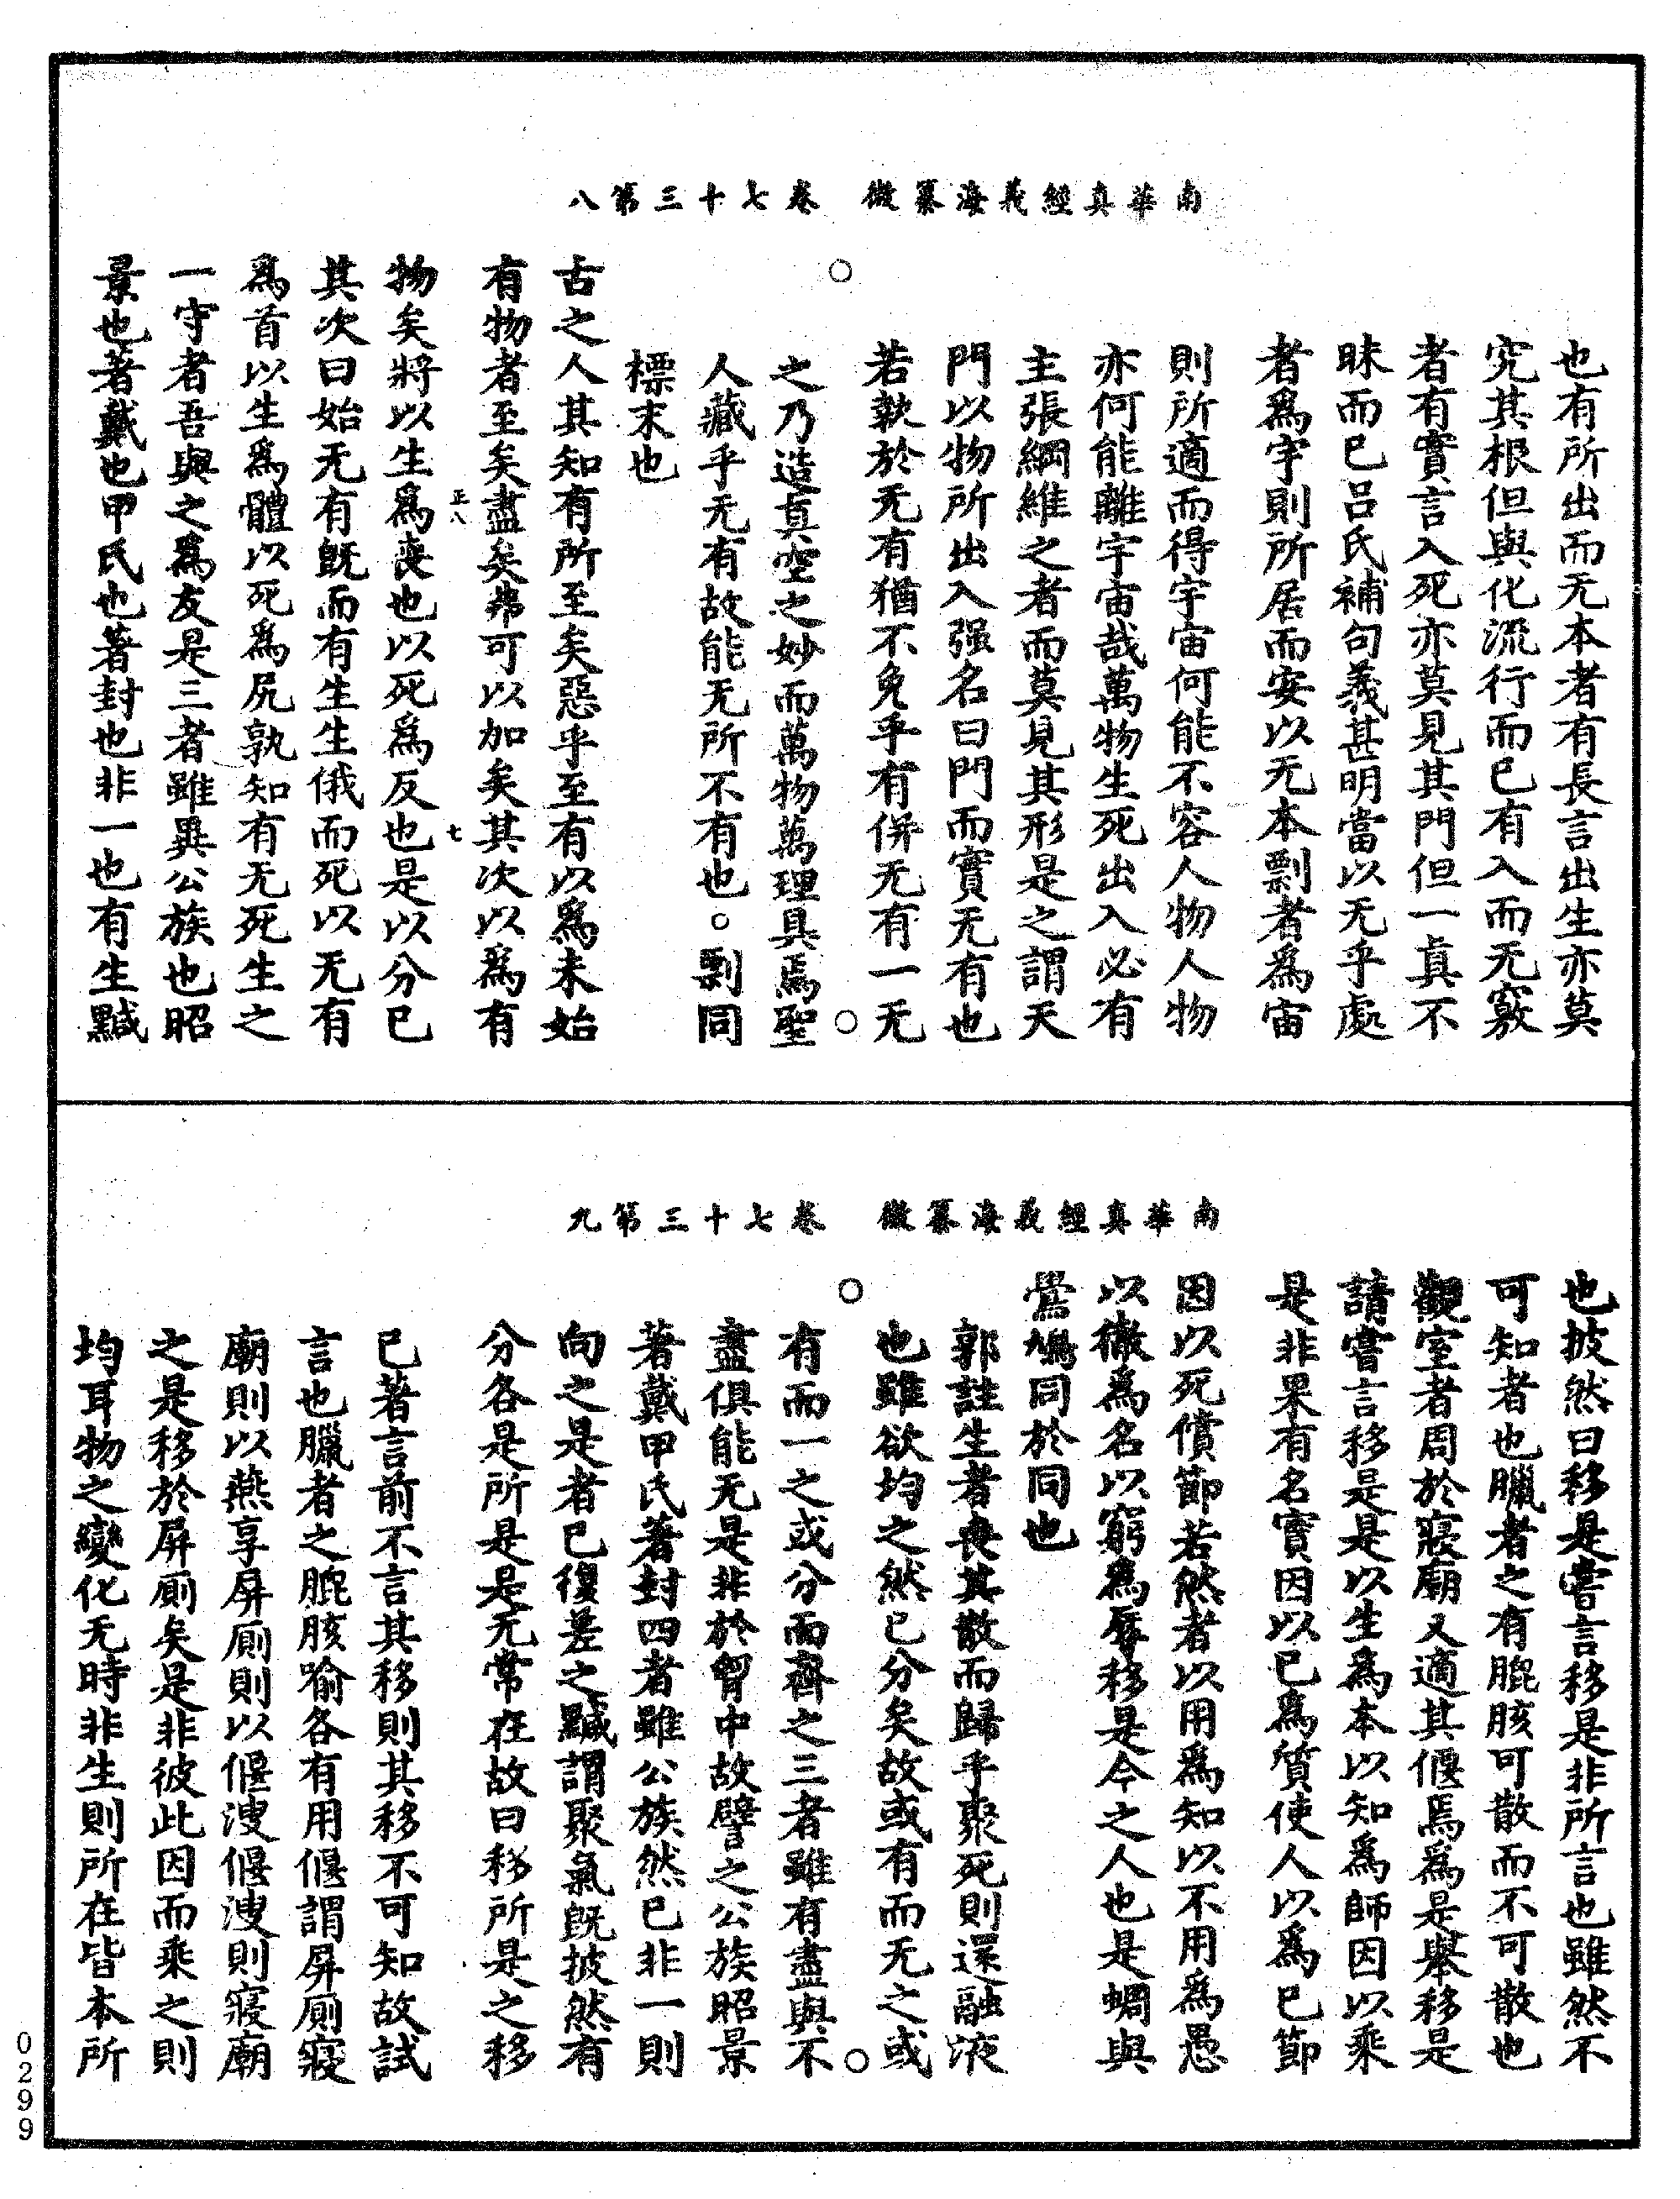 南華真經義海纂微　卷七十三第八
也有所出而无本者有長言出生亦莫
究其根但與化流行而已有入而无竅
者有實言入死亦莫見其門但一真不
昧而已呂氏補句義甚明當以无乎處
者爲宇則所居而安以无本剽者為宙
則所適而得宇宙何能不容人物人物
亦何能離宇宙哉萬物生死出入必有
主張綱維之者而莫見其形是之謂天
門以物所出入强名曰門而實无有也
若執於无有猶不免乎有併无有一无
之乃造真空之妙而萬物萬理具焉聖
人藏乎无有故能无所不有也○剽同
標末也
古之人其知有所至矣惡乎至有以爲未始
有物者至矣盡矣弗可以加矣其次以爲有
正八　七
物矣將以生爲喪也以死爲反也是以分已
其次曰始无有既而有生生俄而死以无有
爲首以生爲體以死爲尻孰知有无死生之
一守者吾與之爲友是三者雖異公族也昭
景也著戴也甲氏也著封也非一也有生黬
南華真經義海纂微　卷七十三第九
也披然曰移是嘗言移是非所言也雖然不
可知者也臘者之有膍胲可散而不可散也
觀室者周於寢廟又適其偃焉爲是舉移是
請嘗言移是是以生爲本以知爲師因以乘
是非果有名實因以已爲質使人以爲已節
因以死償節若然者以用爲知以不用爲愚
以徹爲名以窮爲辱移是今之人也是蜩與
鷽鳩同於同也
郭註生者喪其散而歸乎聚死則還融液
也雖欲均之然已分矣故或有而无之或
有而一之或分而齊之三者雖有盡與不
盡俱能无是非於胷中故譬之公族昭景
著戴甲氏著封四者雖公族然已非一則
向之是者已復差之黬謂聚氣既披然有
分各是所是是无常在故曰移所是之移
已著言前不言其移則其移不可知故試
言也臘者之膍胲喻各有用偃謂屏厠寢
廟則以燕享屏厠則以偃溲偃溲則寢廟
之是移於屏厠矣是非彼此因而乘之則
均耳物之變化无時非生則所在皆本所
0299